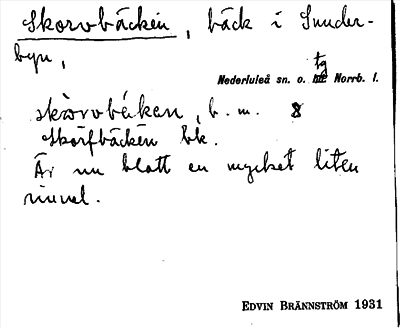 Skorvbäcken, bäck i Sunder-
byn,
tg
Nederluleå sn. o. hd Norrb. l.
skòrvbä́kən, b. m. 8
Skorfbäcken bk.
Är nu blott en mycket liten
rinnel.
EDVIN BRÄNNSTRÖM 1931